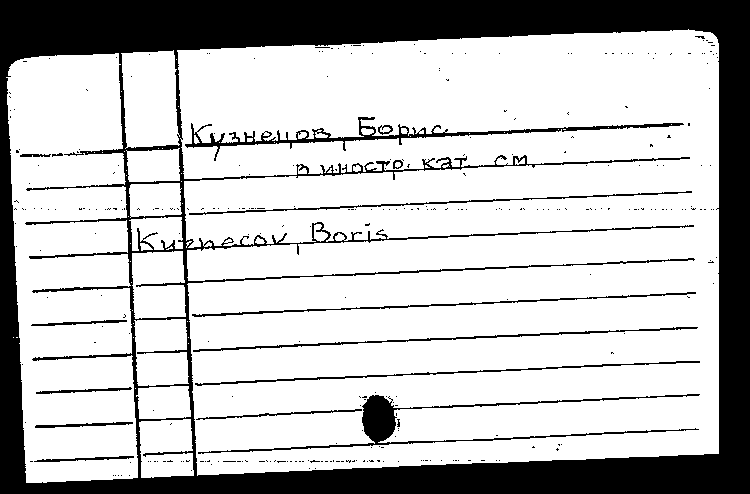 Кузнецов, Борис
в иностр. кат. см.
Kuznecov, Boris